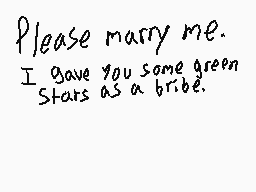 Please marry me.
I gave you some green
stars as a bribe.